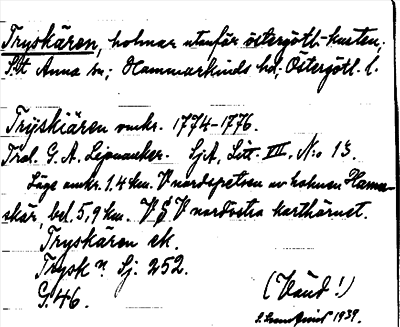 Tryskären, holmar utanför östergötl.-kusten.
S:t Anna sn; Hammarkinds hd; Östergötl. l.
Tryskiären omkr. 1774-1776.
Tral. G. A. Lipnacker. SjA, Litt. III. N:o 13.
Läge omkr. 1.4 km. V nordspetsen av holmen Hamnskär, bel. 5,9 km. V
Tryskären ek.
Trysk n. Sj. 252.
G. 46.
(Vänd!)
1939.